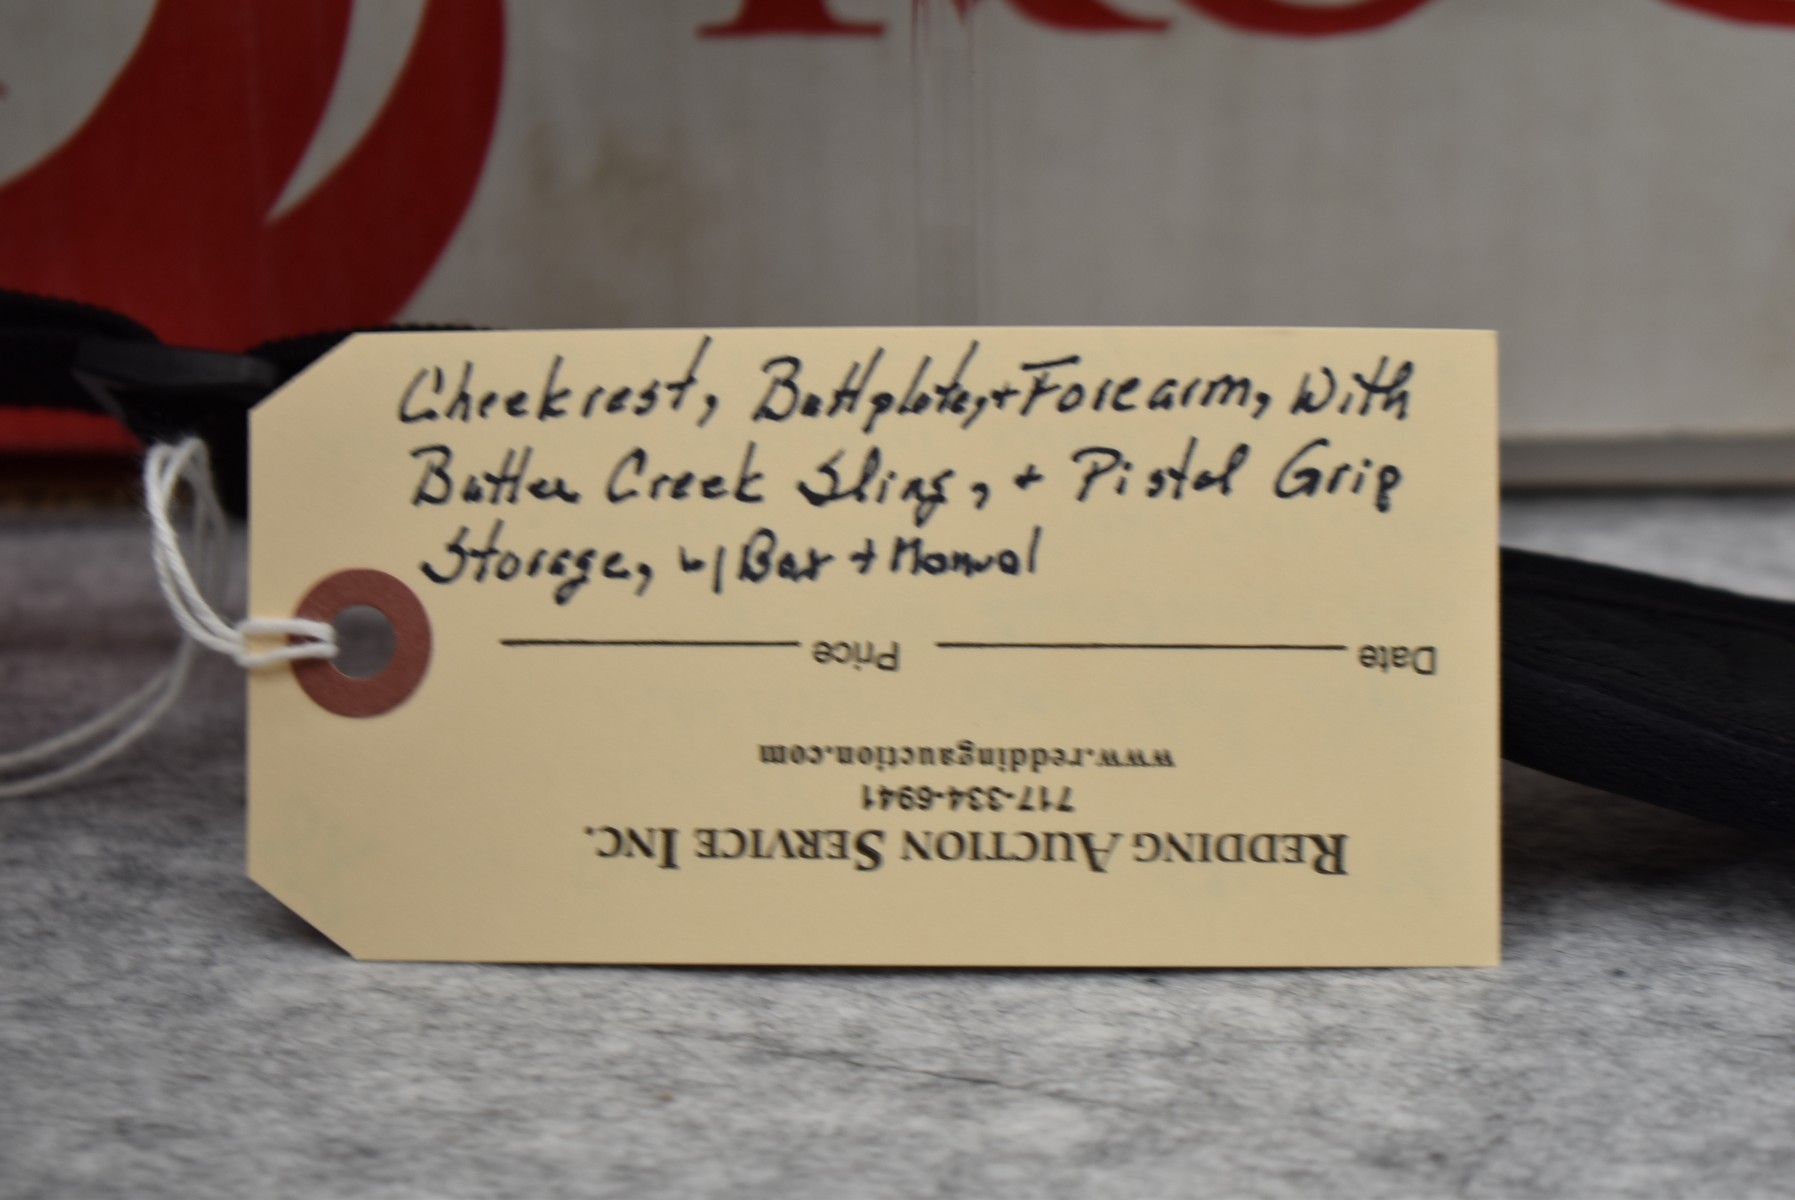 Cheekrest, Buttplate, + Forearm, With
Butler Creek Sling, + Pistol Grip
Storage, w/ Box + Manual
Date Price
www.reddingauction.com
717-334-6941
REDDING AUCTION SERVICE INC.